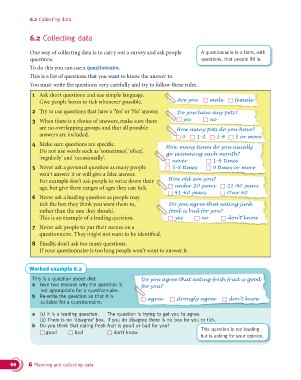 6.2 Collecting data
6.2 Collecting data
One way of collecting data is to carry out a survey and ask people
questions.
To do this you can use a questionnaire.
This is a list of questions that you want to know the answer to.
You must write the questions very carefully and try to follow these rules.
A questionnaire is a form, with
questions, that people fill in.
1 Ask short questions and use simple language.
Give people boxes to tick whenever possible.
Are you male female
2 Try to use questions that have a 'Yes' or 'No' answer.
Do you have any pets?
yes no
3 When there is a choice of answers, make sure there
are no overlapping groups and that all possible
answers are included.
How many pets do you have?
0 1-2 3-4 5 or more
4 Make sure questions are specific.
Do not use words such as 'sometimes', 'often',
'regularly' and 'occasionally'.
How many times do you usually
go swimming each month?
never 1-4 times
5-8 times 9 times or more
5 Never ask a personal question as many people
won't answer it or will give a false answer.
For example don't ask people to write down their
age, but give them ranges of ages they can tick.
How old are you?
under 21 years 21-40 years
41-60 years Over 60
6 Never ask a leading question as people may
tick the box they think you want them to,
rather than the one they should.
This is an example of a leading question.
Do you agree that eating junk
food is bad for you?
yes no don't know
7 Never ask people to put their names on a
questionnaire. They might not want to be identified.
8 Finally, don't ask too many questions.
If your questionnaire is too long people won't want to answer it.
Worked example 6.2
This is a question about diet.
a Give two reasons why the question is
not appropriate for a questionnaire.
b Re-write the question so that it is
suitable for a questionnaire.
Do you agree that eating fresh fruit is good
for you?
agree strongly agree don't know
a (1) It is a leading question. The question is trying to get you to agree.
(2) There is no 'disagree' box. If you do disagree there is no box for you to tick.
b Do you think that eating fresh fruit is good or bad for you?
good bad don't know
This question is not leading
but is asking for your opinion.
6 Planning and collecting data